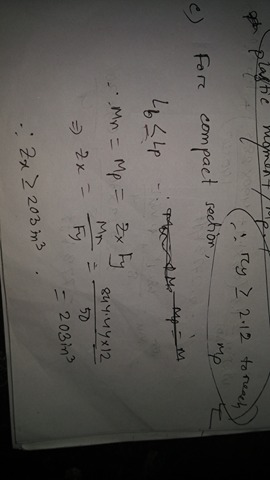 plastic moment
∴ ry ≥ 2.12 to reach Mp
c) Forc compact section,
Lb ≤ Lp -:
∴ Mn = Mp = Zx Fy
⇒ Zx = Mn/Fy = 844.44×12/50 = 203in³
∴ Zx ≥ 203in³.